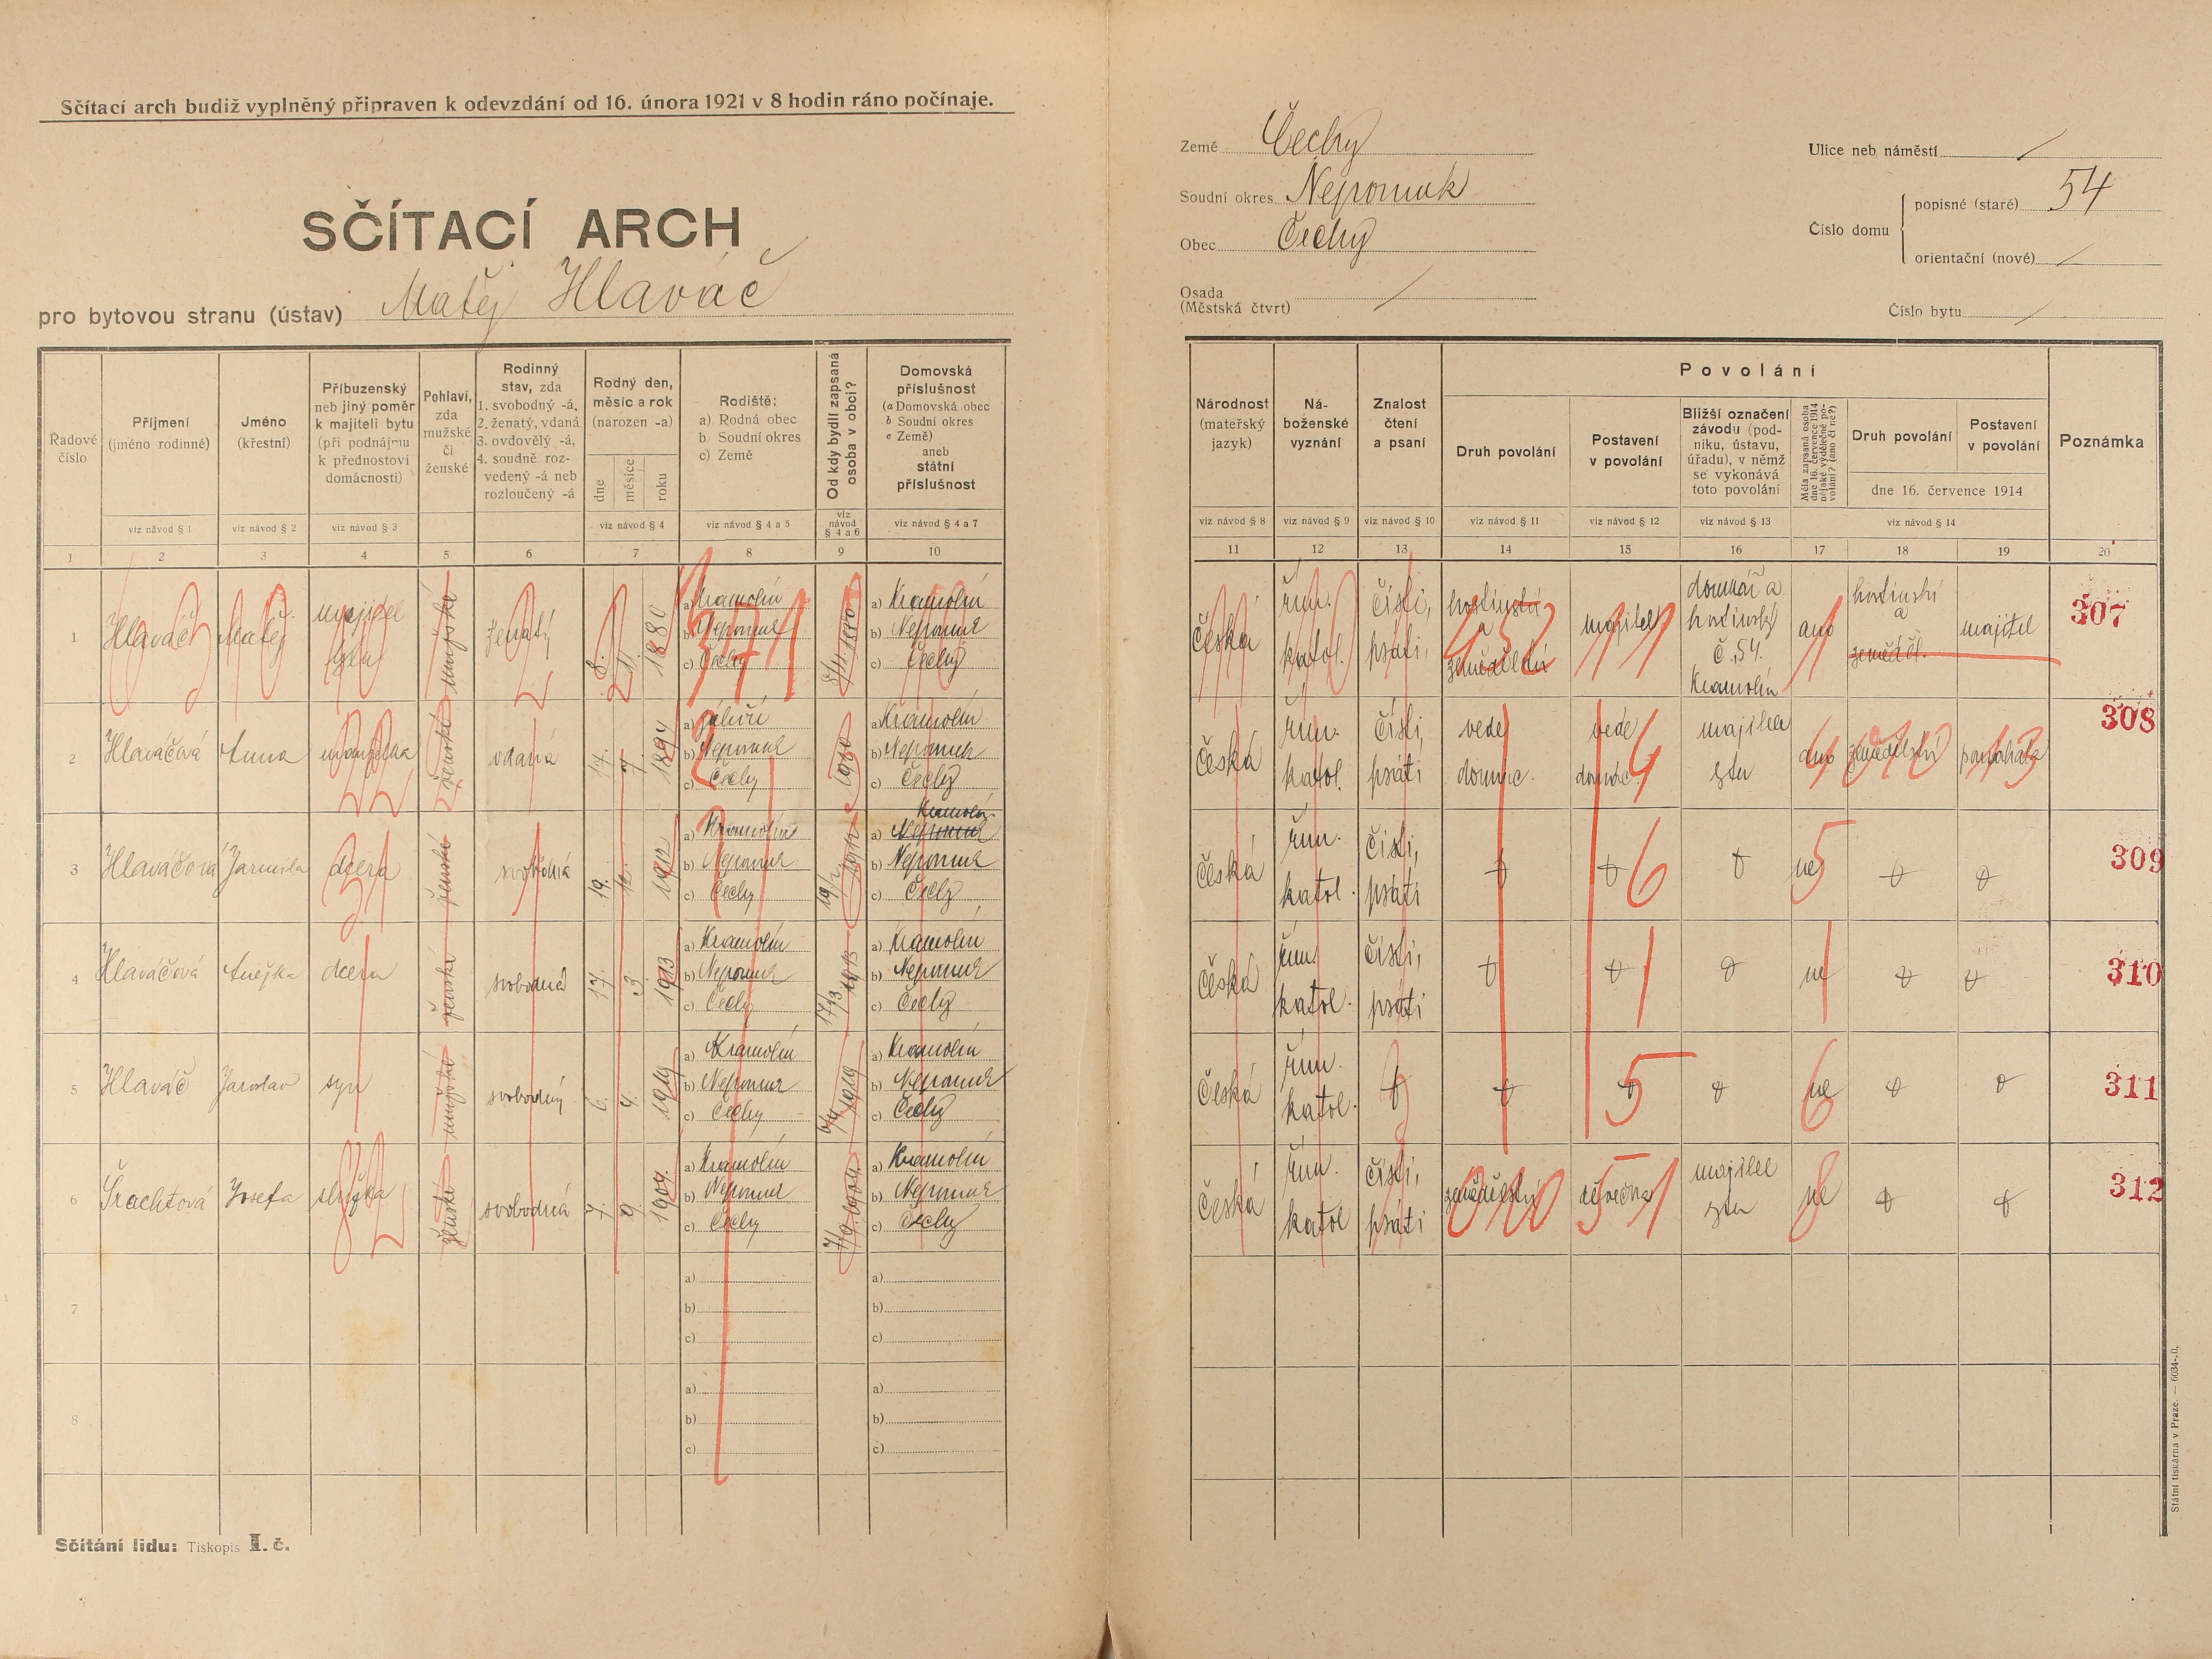 Sčítací arch budiž vyplněný připraven k odevzdání od 16. února 1921 v 8 hodin ráno počínaje.
SČÍTACÍ ARCH
pro bytovou stranu (ústav) Matěj Hlaváč
Země Čechy
Soudní okres Nepomuk
Obec Čechy
Osada
(Městská čtvrt)
Ulice neb náměstí
Číslo domu
popisné (staré) 54
orientační (nové)
Číslo bytu
Řadové
číslo
Příjmení
(jméno rodinné)
Jméno
(křestní)
Příbuzenský
neb jiný poměr
k majiteli bytu
(při podnájmu
k přednostovi
domácnosti)
Pohlaví,
zda
mužské
či
ženské
Rodinný
stav, zda
1. svobodný -á,
2. ženatý, vdaná
3. ovdovělý -á,
4. soudně roz-
vedený -á neb
rozloučený -á
Rodný den,
měsíc a rok
(narozen -a)
dne
měsíce
roku
Rodiště:
a) Rodná obec
b) Soudní okres
c) Země
Od kdy bydlí zapsaná
osoba v obci?
Domovská
příslušnost
(a Domovská obec
b Soudní okres
c Země)
aneb
státní
příslušnost
viz návod § 1
viz návod § 2
viz návod § 3
viz návod § 4
viz návod § 4 a 5
viz
návod
§ 4 a 6
viz návod § 4 a 7
1 2 3 4 5 6 7 8 9 10
Národnost
(mateřský
jazyk)
Ná-
boženské
vyznání
Znalost
čtení
a psaní
Povolání
Druh povolání
Postavení
v povolání
Bližší označení
závodu (pod-
niku, ústavu,
úřadu), v němž
se vykonává
toto povolání
Měla zapsaná osoba
dne 16. července 1914
nějaké výdělečné po-
volání? (ano či ne?)
Druh povolání
Postavení
v povolání
dne 16. července 1914
Poznámka
viz návod § 8
viz návod § 9
viz návod § 10
viz návod § 11
viz návod § 12
viz návod § 13
viz návod § 14
11 12 13 14 15 16 17 18 19 20
1 Hlaváč Matěj majitel bytu mužské ženatý 8. 11. 1880
a) Kramolín
b) Nepomuk
c) Čechy
8/11 1880
a) Kramolín
b) Nepomuk
c) Čechy
Česká řím. katol. čísti, psáti, hostinský a zemědělství majitel domkář a hostinský č. 54. Kramolín ano hostinský a zeměděl. majitel 307
2 Hlaváčová Anna manželka ženské vdaná 17. 7. 1894
a) Záhoří
b) Nepomuk
c) Čechy
a) Kramolín
b) Nepomuk
c) Čechy
Česká řím. katol. čísti, psáti vede domác. vede domác. majitel bytu ano zemědělství pomáhala 308
3 Hlaváčová Jarmila dcera ženské svobodná 19. 12. 1912
a) Kramolín
b) Nepomuk
c) Čechy
19/12 1912
Kramolín
a) Nepomuk
b) Nepomuk
c) Čechy
Česká řím. katol. čísti, psáti ne 309
4 Hlaváčová Anežka dcera ženské svobodná 17. 3. 1913
a) Kramolín
b) Nepomuk
c) Čechy
17/3 1913
a) Kramolín
b) Nepomuk
c) Čechy
Česká řím. katol. čísti, psáti ne 310
5 Hlaváč Jaroslav syn mužské svobodný 6. 4. 1919
a) Kramolín
b) Nepomuk
c) Čechy
6/4 1919
a) Kramolín
b) Nepomuk
c) Čechy
Česká řím. katol. ne 311
6 Šrachtová Josefa služka ženské svobodná 7. 9. 1904.
a) Kramolín
b) Nepomuk
c) Čechy
7/9 1904.
a) Kramolín
b) Nepomuk
c) Čechy
Česká řím. katol čísti, psáti zemědělství děvečka majitel bytu ne 312
7
a)
b)
c)
a)
b)
c)
8
a)
b)
c)
a)
b)
c)
Sčítání lidu: Tiskopis I. č.
Státní tiskárna v Praze. — 6034-.0.